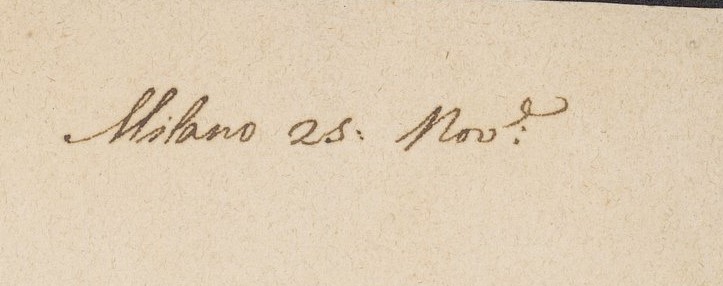 Milano 25: Nov.e